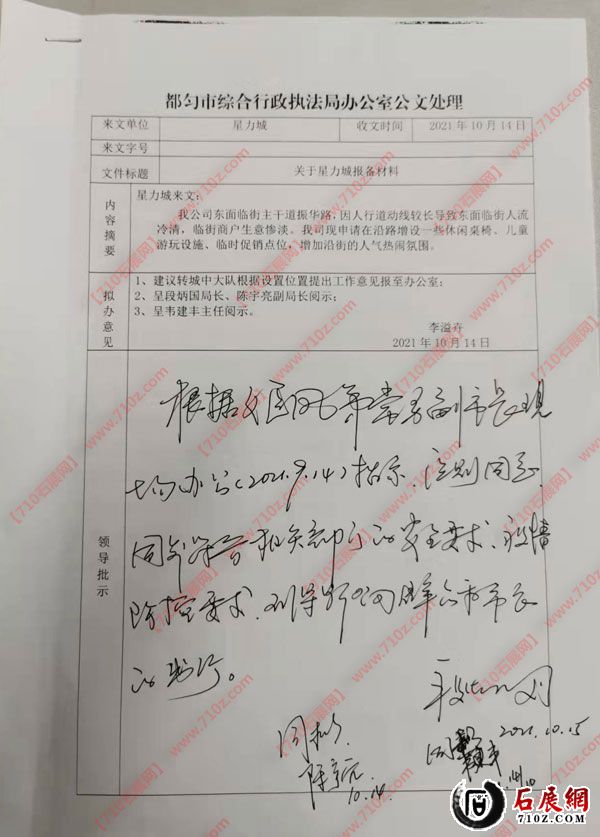 都匀市综合行政执法局办公室公文处理
来文单位 星力城 收文时间 2021年10月14日
来文字号
文件标题 关于星力城报备材料
内容摘要 星力城来文:
我公司东面临街主干道振华路,因人行道动线较长导致东面临街人流
冷清,临街商户生意惨淡。我司现申请在沿路增设一些休闲桌椅、儿童
游玩设施、临时促销点位,增加沿街的人气热闹氛围。
拟办意见 1、建议转城中大队根据设置位置提出工作意见报至办公室;
2、呈段炳国局长、陈宇亮副局长阅示;
3、呈韦建丰主任阅示。
李溢卉
2021年10月14日
领导批示
根据 常务副市长现
场办公(2021.9.14)指示,原则同意,
同时 相关部门的安全要求、疫情
防控要求,
2021.10.15
10.14
【710石展网】www.710z.com
石展網
710Z.COM